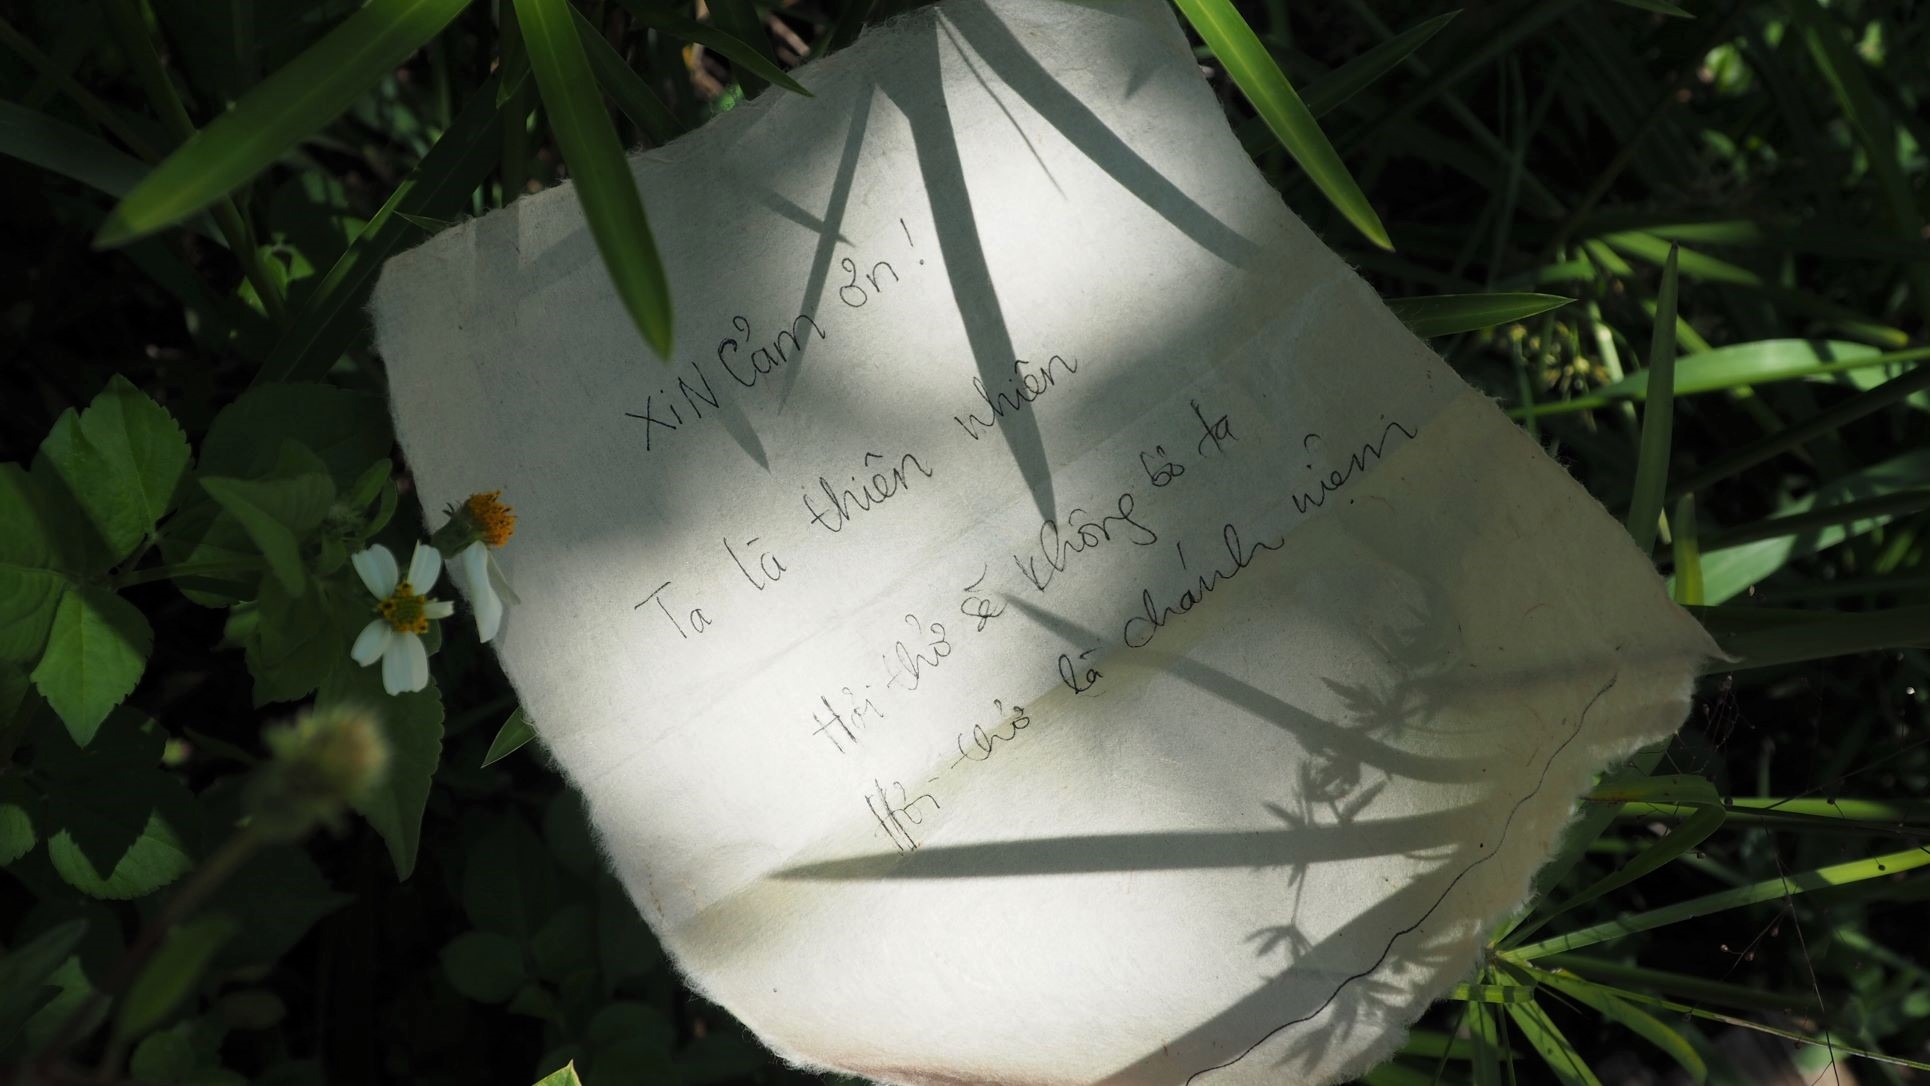 XiN Cảm ơn!
Ta là thiên nhiên
Hơi thở sẽ không bỏ ta
Hơi thở là chánh niệm